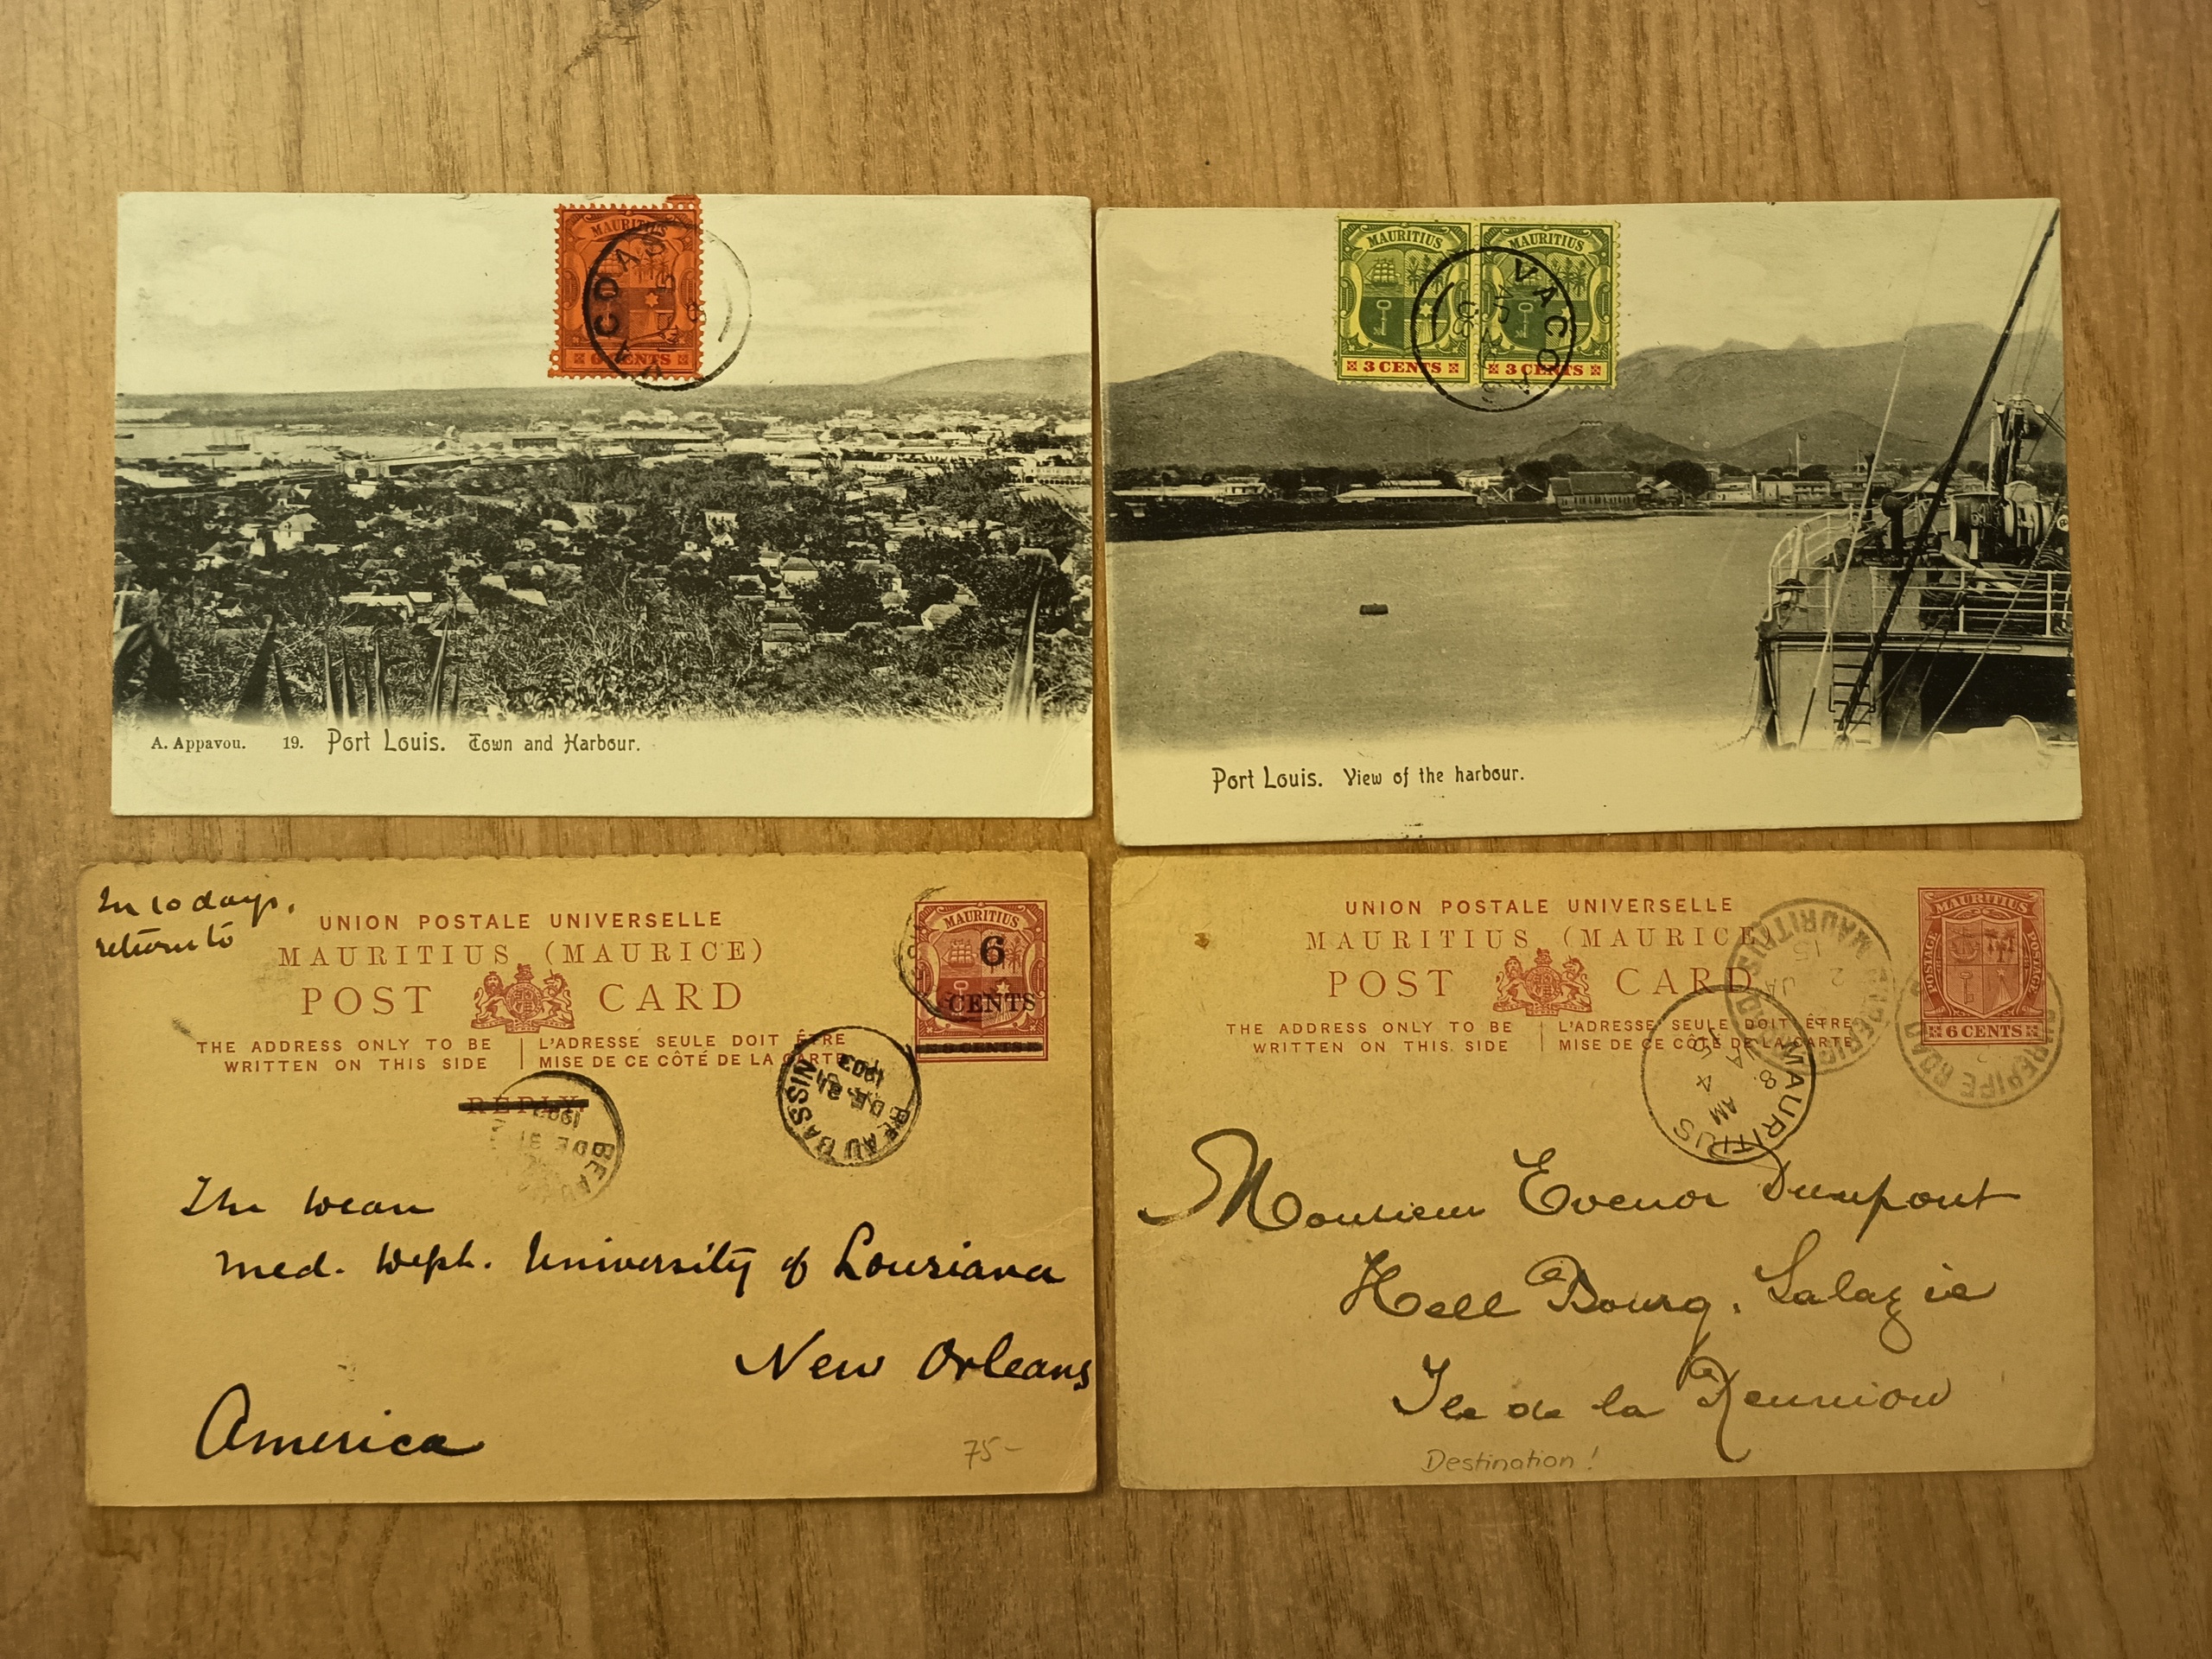 MAURITIUS
6 CENTS
VACOAS
A. Appavou. 19. Port Louis. Town and Harbour.
MAURITIUS
3 CENTS
MAURITIUS
3 CENTS
VACOA
Port Louis. View of the harbour.
In 10 days,
return to
UNION POSTALE UNIVERSELLE
MAURITIUS (MAURICE)
POST CARD
THE ADDRESS ONLY TO BE
WRITTEN ON THIS SIDE
L'ADRESSE SEULE DOIT ÊTRE
MISE DE CE CÔTÉ DE LA CARTE
REPLY
MAURITIUS
6
CENTS
8 CENTS
BEAU BASSIN
DE 21
1903
BEAU
DE 21
The Dean
Med. Deph. University of Louisiana
New Orleans
America
75-
UNION POSTALE UNIVERSELLE
MAURITIUS (MAURICE)
POST CARD
THE ADDRESS ONLY TO BE
WRITTEN ON THIS SIDE
L'ADRESSE SEULE DOIT ÊTRE
MISE DE CE CÔTÉ DE LA CARTE
MAURITIUS
POSTAGE
POSTAGE
6 CENTS
MAURITIUS
2 JA
15
MAURITIUS
8 AM
JA 4
15
Monsieur Evenor Dumpont
Hell Bourg, Salazie
Ile de la Reunion
Destination!